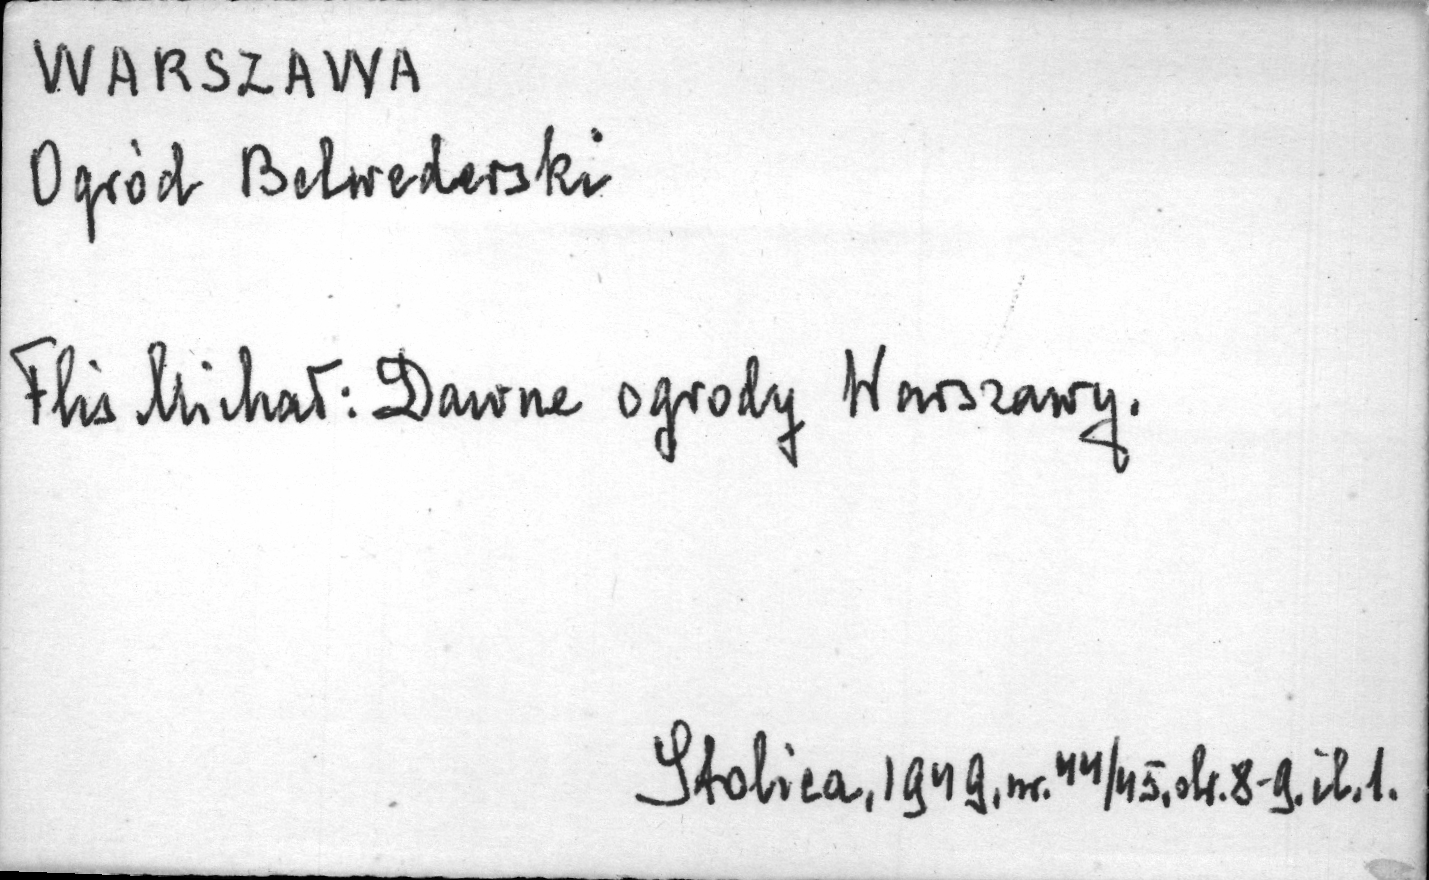 WARSZAWA
Ogród Belwederski
Flis Michał: Dawne ogrody Warszawy.
Stolica, 1949, nr. 44/45, str. 8-9. il. 1.